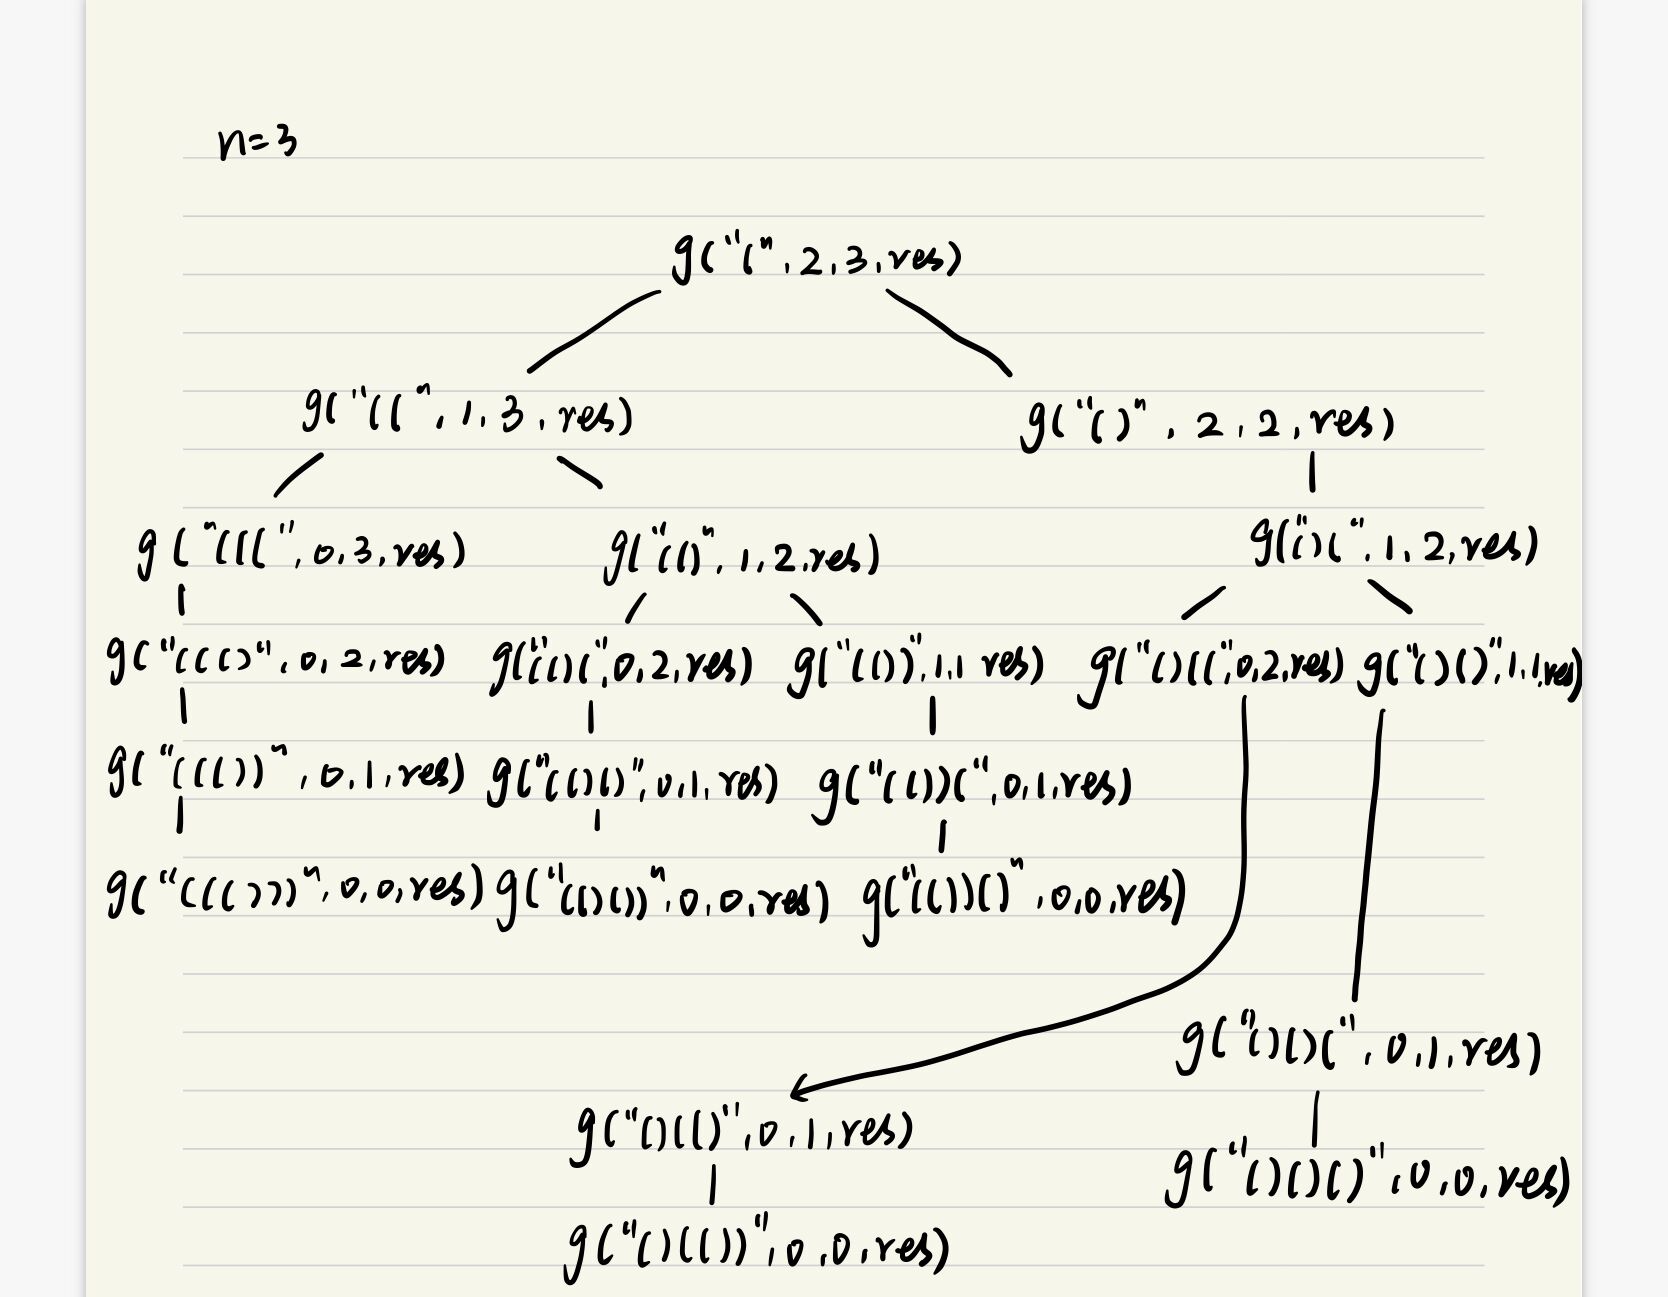 n=3
g("(",2,3,res)
g("((",1,3,res) g("()",2,2,res)
g("(((",0,3,res) g("(()",1,2,res) g("()(",1,2,res)
g("((()",0,2,res) g("(()(",0,2,res) g("(())",1,1 res) g("()((",0,2,res) g("()()",1,1,res)
g("((())",0,1,res) g("(()()",0,1,res) g("(())(",0,1,res)
g("((()))",0,0,res) g("(()())",0,0,res) g("(())()",0,0,res)
g("()()(",0,1,res)
g("()(()",0,1,res)
g("()()()",0,0,res)
g("()(())",0,0,res)